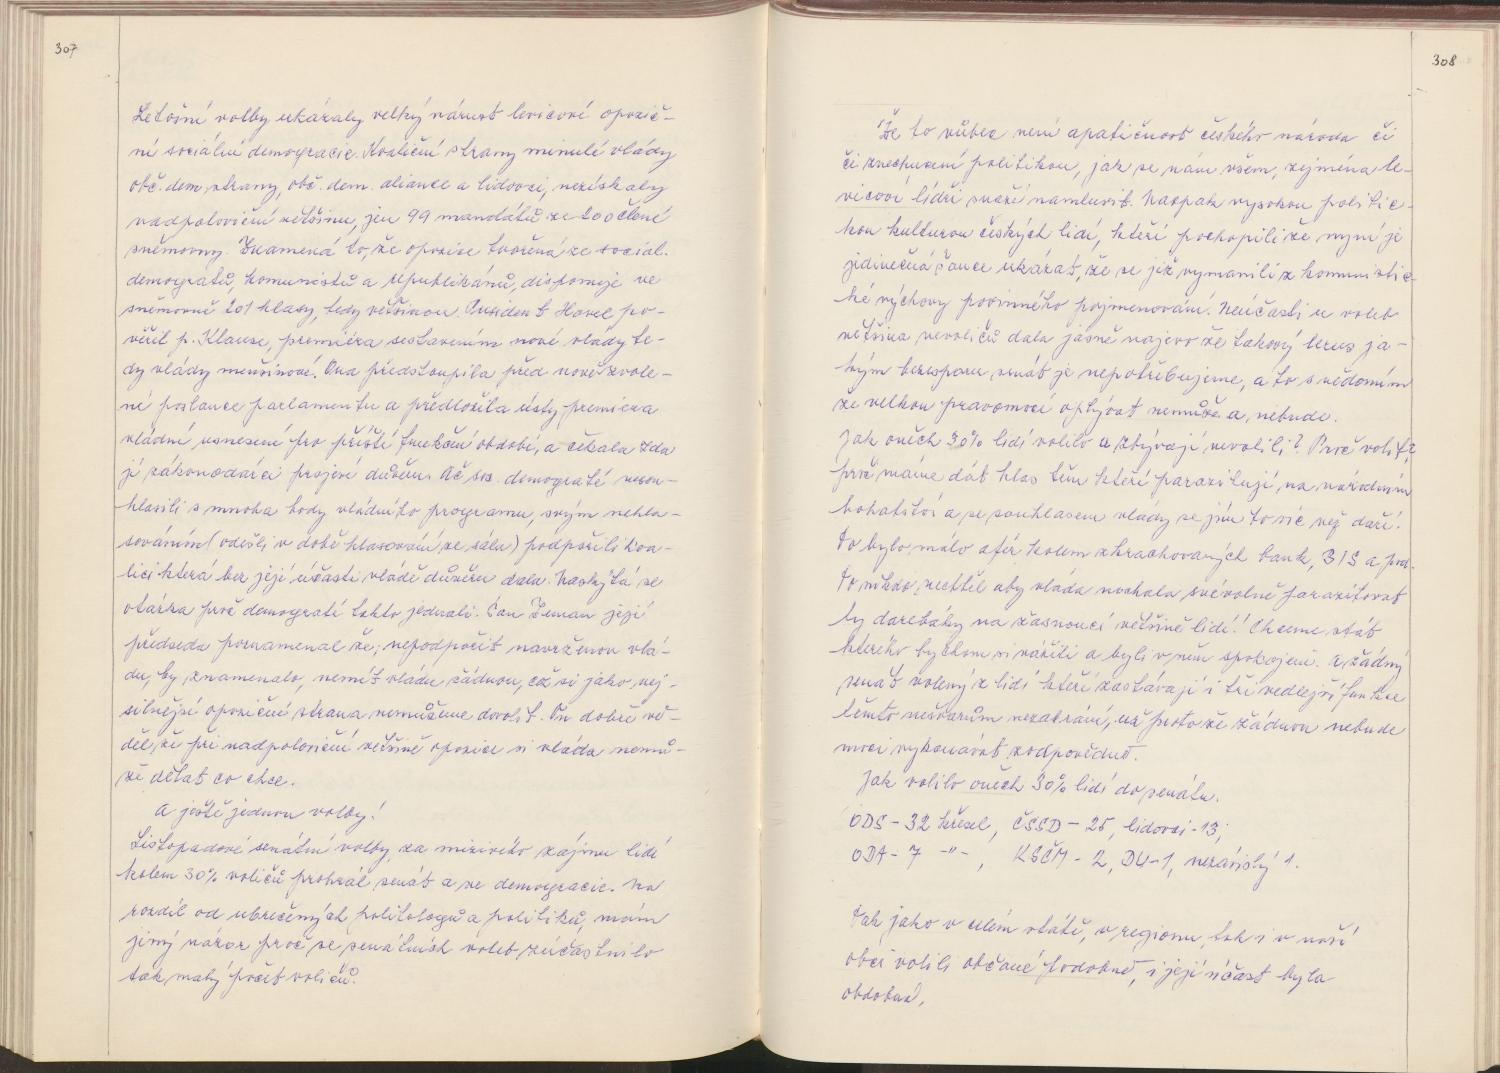 307
Letošní volby ukázaly velký nárust levicové oposič-
ní sociální demogracie. Koaliční strany minulé vlády
obč. dem. strany, obč. dem. aliance a lidovci, nezískaly
nadpoloviční většinu, jen 99 mandátů ze 200 člené
sněmovny. Znamená to, že oposice tvořená ze sociál.
demogratů, komunistů a republikánů, disponuje ve
sněmovně 101 hlasy, tedy většinou. President Havel po-
věřil p. Klause, premiéra sestavením nové vlády te-
dy vlády menšinové. Ona předstoupila před nově zvole-
né poslance parlamentu a předložila ústy premiera
vládní usnesení pro příští funkční období, a čekala zda
jí zákonodárci projeví důvěru. Ač soc. demograté nesou-
hlasili s mnoha body vládního programu, svým nehla-
sováním (odešli v době hlasování ze sálu) podpořili koa-
lici která bez její účasti vládě důvěru dala. Naskýta se
otázka proč demograté takto jednali. Pan Zeman její
předseda poznamenal že; nepodpořit navrženou vlá-
du, by znamenalo, nemít vládu žádnou, což si jako nej-
silnější oposiční strana nemůžeme dovolit. On dobře vě-
děl, že při nadpoloviční většině oposice si vláda nemů-
že dělat co chce.
A ještě jednou volby!
Listopadové senátní volby, za mizivého zájmu lidí
kolem 30% voličů prohrál senát a ne demogracie. Na
rozdíl od ubrečených politologů a politiků, mám
jiný názor proč se senátních voleb zúčastnilo
tak malý počet voličů.
308
Že to vůbec není apatičnost českého národa či
či znechucení politikou, jak se nám všem, zejména le-
vicoví lídři snaží namluvit. Naopak vysokou politic-
kou kulturou českých lidí, kteří pochopili že nyní je
jedinečná šance ukázat, že se již vymanili z komunistic-
ké výchovy povinného pojmenování. Neúčastí u voleb
většina nevoličů dala jasně najevo že takový luxus ja-
kým bezesporu senát je nepotřebujeme, a to s vědomím
že velkou pravomocí oplývat nemůže a, nebude.
Jak oněch 30% lidí volilo a zbývají nevolili? Proč volit?
proč máme dát hlas těm kteří parazitují, na národním
bohatství a se souhlasem vlády se jim to víc než daří!
To bylo málo afér kolem zkrachovaných bank, BIS a pod.
To nikdo nechtěl aby vláda nechala svévolně parazitovat
ty darebáky na žasnoucí většině lidí! Chceme stát
kterého bychom si vážili a byli v něm spokojeni. A žádný
senát volený z lidí kteří zastávají i tři vedlejší funkce
těmto nešvarům nezabrání, už proto že žádnou nebude
moci vykonávat zodpovědně.
Jak volilo oněch 30% lidí do senátu.
ODS - 32 křesel, ČSSD - 25, lidovci - 13,
ODA - 7 -"- , KSČM - 2, DU-1, nezávislý 1.
Tak jako v celém státě, v regionu, tak i v naší
obci volili občané podobně, i její účast byla
obdobná.